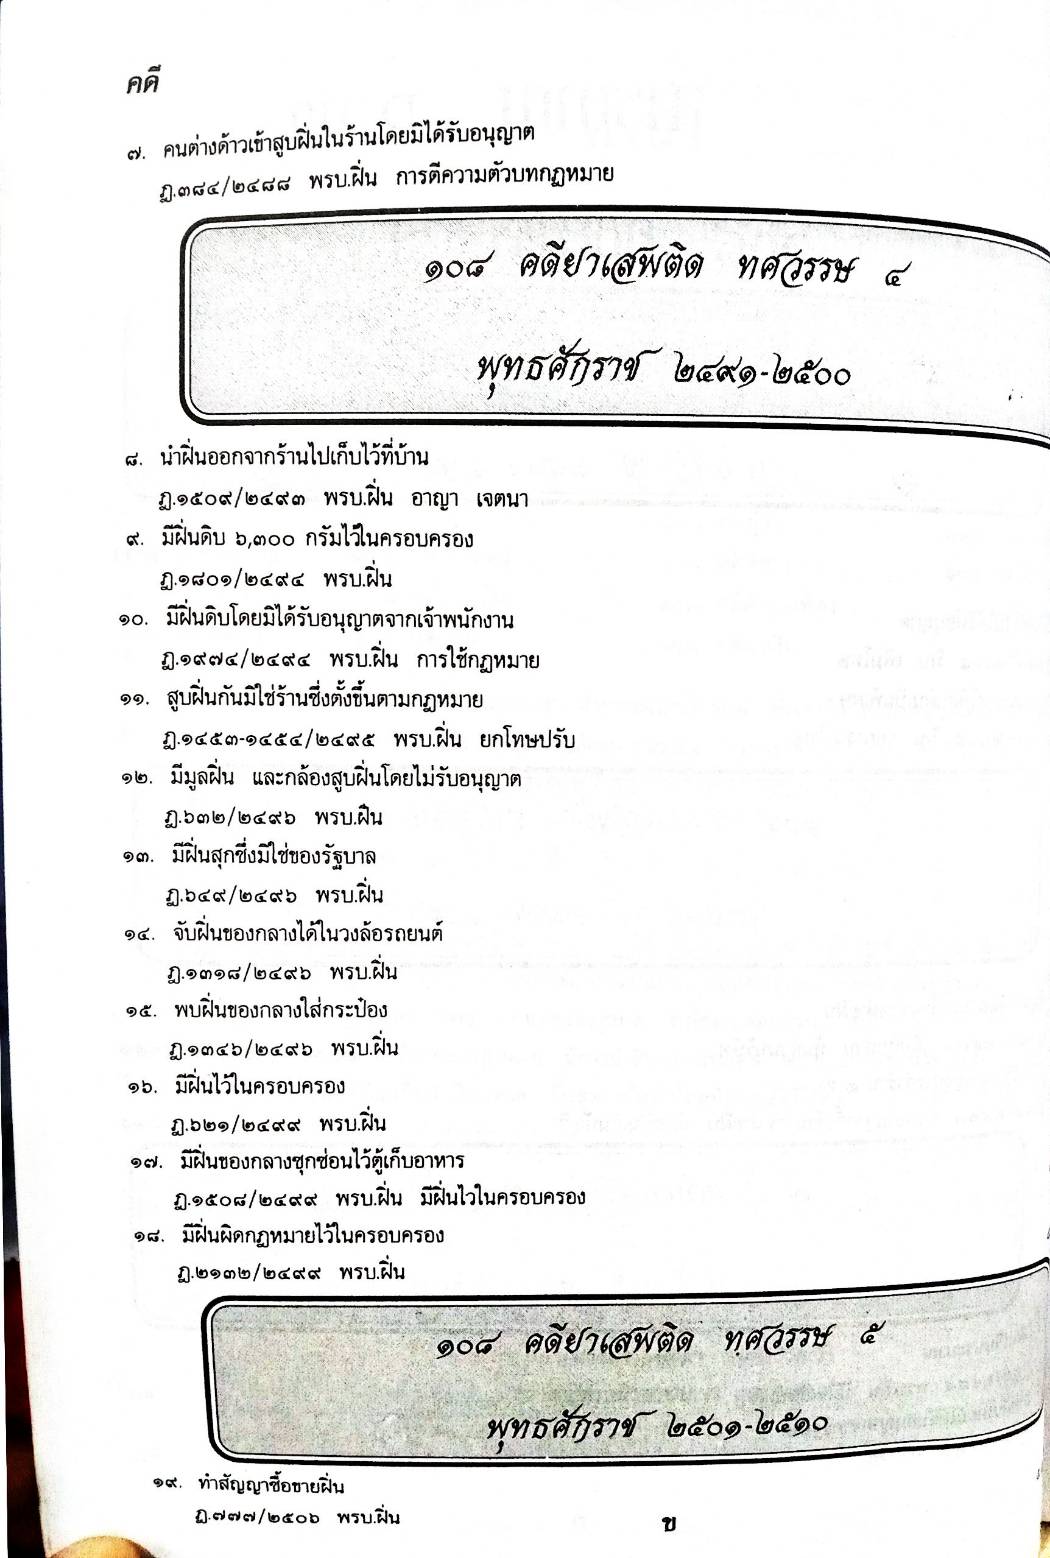 คดี
๗. คนต่างด้าวเข้าสูบฝิ่นในร้านโดยมิได้รับอนุญาต
ฎ.๓๘๔/๒๔๘๘ พรบ.ฝิ่น การตีความตัวบทกฎหมาย
๑๐๘ คดียาเสพติด ทศวรรษ ๔
พุทธศักราช ๒๔๙๑-๒๕๐๐
๘. นำฝิ่นออกจากร้านไปเก็บไว้ที่บ้าน
ฎ.๑๕๐๙/๒๔๙๓ พรบ.ฝิ่น อาญา เจตนา
๙. มีฝิ่นดิบ ๖,๓๐๐ กรัมไว้ในครอบครอง
ฎ.๑๘๐๑/๒๔๙๔ พรบ.ฝิ่น
๑๐. มีฝิ่นดิบโดยมิได้รับอนุญาตจากเจ้าพนักงาน
ฎ.๑๙๗๔/๒๔๙๔ พรบ.ฝิ่น การใช้กฎหมาย
๑๑. สูบฝิ่นกันมิใช่ร้านซึ่งตั้งขึ้นตามกฎหมาย
ฎ.๑๔๕๓-๑๔๕๔/๒๔๙๕ พรบ.ฝิ่น ยกโทษปรับ
๑๒. มีมูลฝิ่น และกล้องสูบฝิ่นโดยไม่รับอนุญาต
ฎ.๖๓๒/๒๔๙๖ พรบ.ฝืน
๑๓. มีฝิ่นสุกซึ่งมิใช่ของรัฐบาล
ฎ.๖๔๙/๒๔๙๖ พรบ.ฝิ่น
๑๔. จับฝิ่นของกลางได้ในวงล้อรถยนต์
ฎ.๑๓๑๘/๒๔๙๖ พรบ.ฝิ่น
๑๕. พบฝิ่นของกลางใส่กระป๋อง
ฎ.๑๓๔๖/๒๔๙๖ พรบ.ฝิ่น
๑๖. มีฝิ่นไว้ในครอบครอง
ฎ.๖๒๑/๒๔๙๙ พรบ.ฝิ่น
๑๗. มีฝิ่นของกลางซุกซ่อนไว้ตู้เก็บอาหาร
ฎ.๑๕๐๘/๒๔๙๙ พรบ.ฝิ่น มีฝิ่นไวในครอบครอง
๑๘. มีฝิ่นผิดกฎหมายไว้ในครอบครอง
ฎ.๒๑๓๒/๒๔๙๙ พรบ.ฝิ่น
๑๐๘ คดียาเสพติด ทศวรรษ ๕
พุทธศักราช ๒๕๐๑-๒๕๑๐
๑๙. ทำสัญญาซื้อขายฝิ่น
ฎ.๗๗๗/๒๕๐๖ พรบ.ฝิ่น
ข